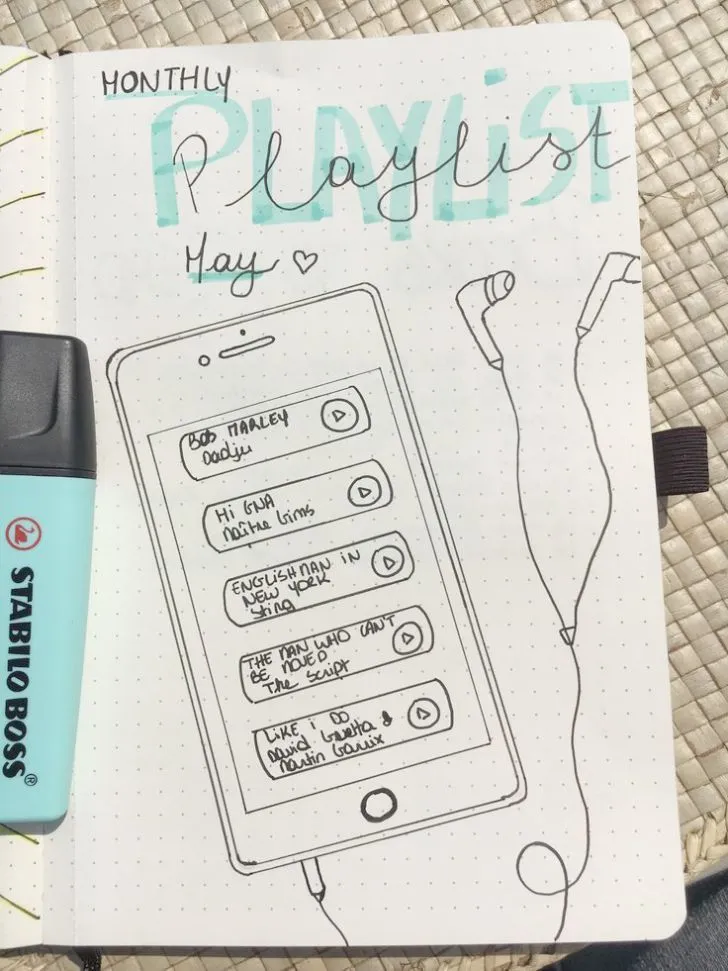 MONTHLY
PLAYLIST
Playlist
May ♡
BOB MARLEY
Dadju
Hi GNA
Maître Gims
ENGLISHMAN IN
NEW YORK
Sting
THE MAN WHO CAN'T
BE MOVED
The Script
LIKE I DO
David Guetta &
Martin Garrix
STABILO BOSS®